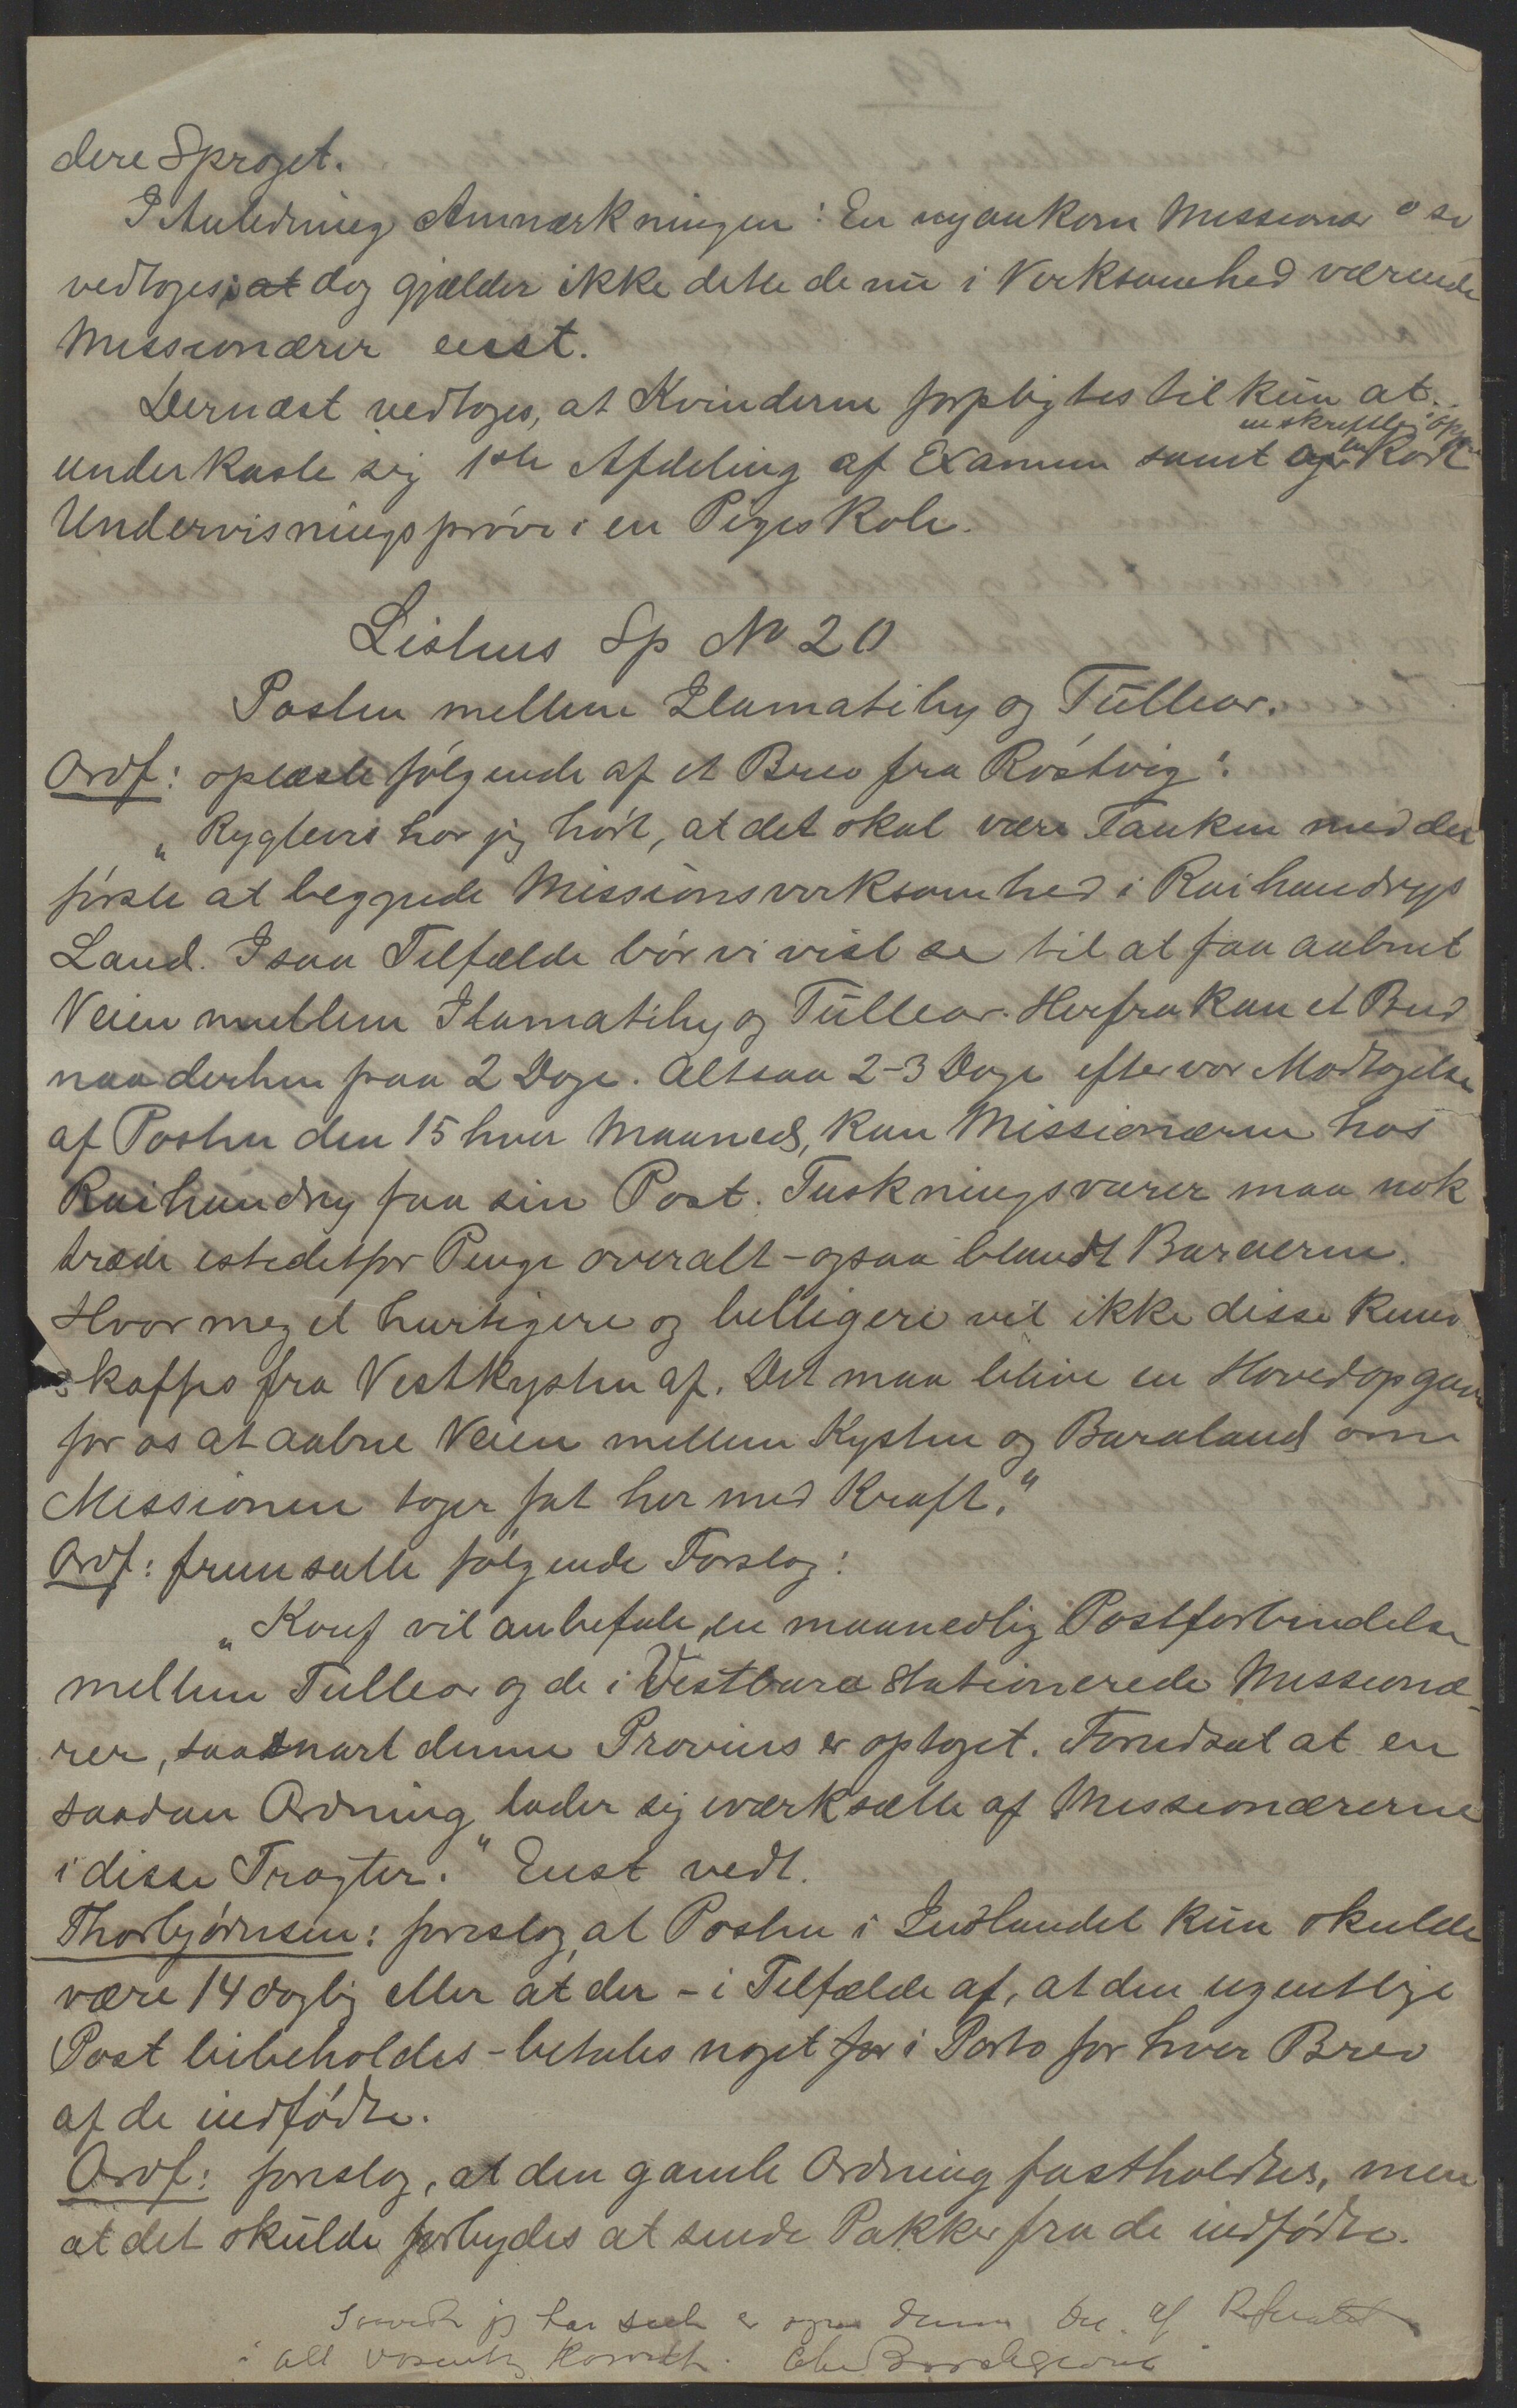 dere Sproget.
I Anledning Anmærkningen: En nyankom Missionær " se
vedtoges; at dog gjælder ikke dette de nu i Verksomhed værende
Missionærer enst.
Dernæst vedtoges, at Kvinderne forpligtes til kun at
en skreftlig Opg
underkaste sig 1ste Afdeling af Examen samt en kort
Undervisningsprøve i en Pigeskole.
Listens Sp No 20
Posten mellem Ilamatihy og Tullear.
Ordf: oplæste følgende af et Brev fra Røstvig:
„Rygtevis har jeg hørt, at det skal være Tanken med det
første at begynde Missionsverksomhed i Raihandrys
Land. I saa Tilfælde bør vi vist se til at faa aabnet
Veien mellem Ilamatihy og Tullear. Herfra kan et Bud
naa derhen paa 2 Dage. Altsaa 2-3 Dage efter vor Modtagelse
af Posten den 15 hver Maaned, kan Missionærerne hos
Raihandry faa sin Post. Tuskningsvarer maa nok
træde istedetfor Penge overalt - ogsaa blandt Baraerne.
Hvor meget hurtigere og billigere vil ikke disse kunne
skaffes fra Vestkysten af. Det maa blive en Hovedopgave
for os at aabne Veien mellem Kysten og Baraland om
Missionen tager fat her med Kraft."
Ordf: fremsatte følgende Forslag:
„Konf vil anbefale, en maanedlig Postforbindelse
mellem Tullear og de i Vestbara stationerede Missionæ-
rer, saasnart denne Provins er optaget. Forudsat at en
saadan Ordning lader sig iværksætte af Missionærerne
i disse Tragter." Enst vedt.
Thorbjørnsen: foreslog, at Posten i Indlandet kun skulde
være 14 daglig eller at der - i Tilfælde af, at den ugentlige
Post bibeholdes - betales noget for i Porto for hver Brev
af de indfødte.
Ordf: foreslog, at den gamle Ordning fastholdtes, men
at det skulde forbydes at sende Pakker fra de indfødte.
Saavidt jeg har seet er ogsaa denne Del af Referatet
i alt væsentlig korrekt. Chr Borchgrevink